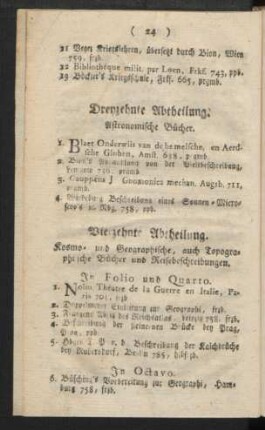 ( 24 )
21 Veges Kriegslehren, übersetzt durch Bion, Wien
759, frzb.
22 Bibliothéque milit. par Loen, Frkf. 743, ppb.
23 Böckler's Kriegsschule, Frkf. 665, prgmb.
Dreyzehnte Abtheilung.
Astronomische Bücher.
1. Blaeu Onderwiis van de hemelsche, en Aerd-
sche Globen, Amst. 658. prgmb.
2. Bion's der Weltbeschreibung,
3. Gauppens J Gnomonica mechan. Augsb. 711,
prgmb.
4. Beschreibung eines Sonnen-Micro-
scop's Nbg. 758, ppb.
Vierzehnte Abtheilung.
Kosmo- und Geographische, auch Topogra-
phische Bücher und Reisebeschreibungen.
In Folio und Quarto.
1. Nolin Theatre de la Guerre en Italie, Pa-
ris 701, frzb
2. Einleitung zur Geographi, frzb
3. des Reichsatlas, 758, frzb.
4. Beschreibung der steinernen Brücke bey Prag,
Prag, ppb
5. J P v. d Beschreibung der Kalchbrüche
bey Rüdersdorf, Berlin 785, hlbfrzb.
In Octavo.
6. Büsching's Vorbereitung zur Geographi, Ham-
burg 758, frzb.